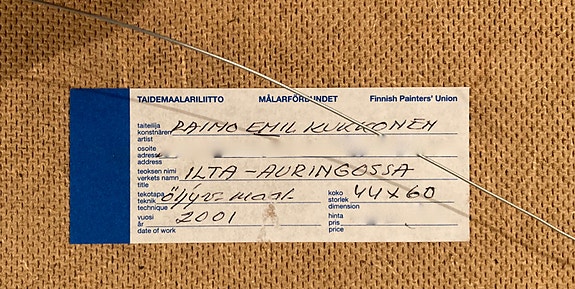 TAIDEMAALARILIITTO MÅLARFÖRBUNDET Finnish Painters' Union
taiteilija
konstnären RAIMO EMIL KUKKONEN
artist
osoite
adress
address
teoksen nimi
verkets namn ILTA-AURINGOSSA
title
tekotapa koko
teknik öljyv. maal. storlek 44x60
technique dimension
vuosi hinta
år 2001 pris
date of work price